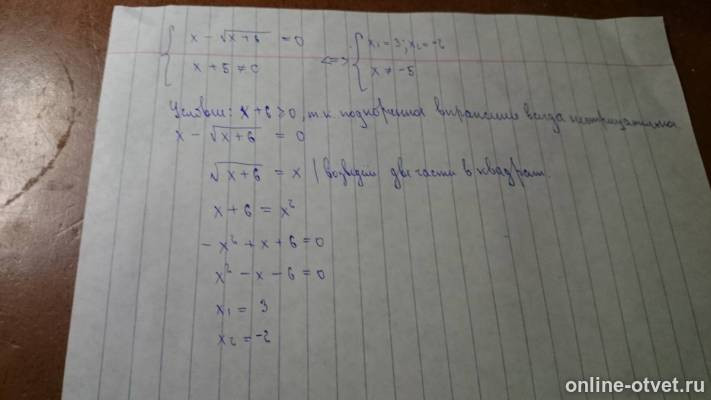 x - √(x+6) = 0
x + 5 ≠ 0
<=>
x₁ = 3; x₂ = -2
x ≠ -5
Условие: x + 6 ≥ 0, т.к подкоренное выражение всегда неотрицательна
x - √(x+6) = 0
√(x+6) = x | возведем две части в квадрат.
x + 6 = x²
-x² + x + 6 = 0
x² - x - 6 = 0
x₁ = 3
x₂ = -2
online-otvet.ru